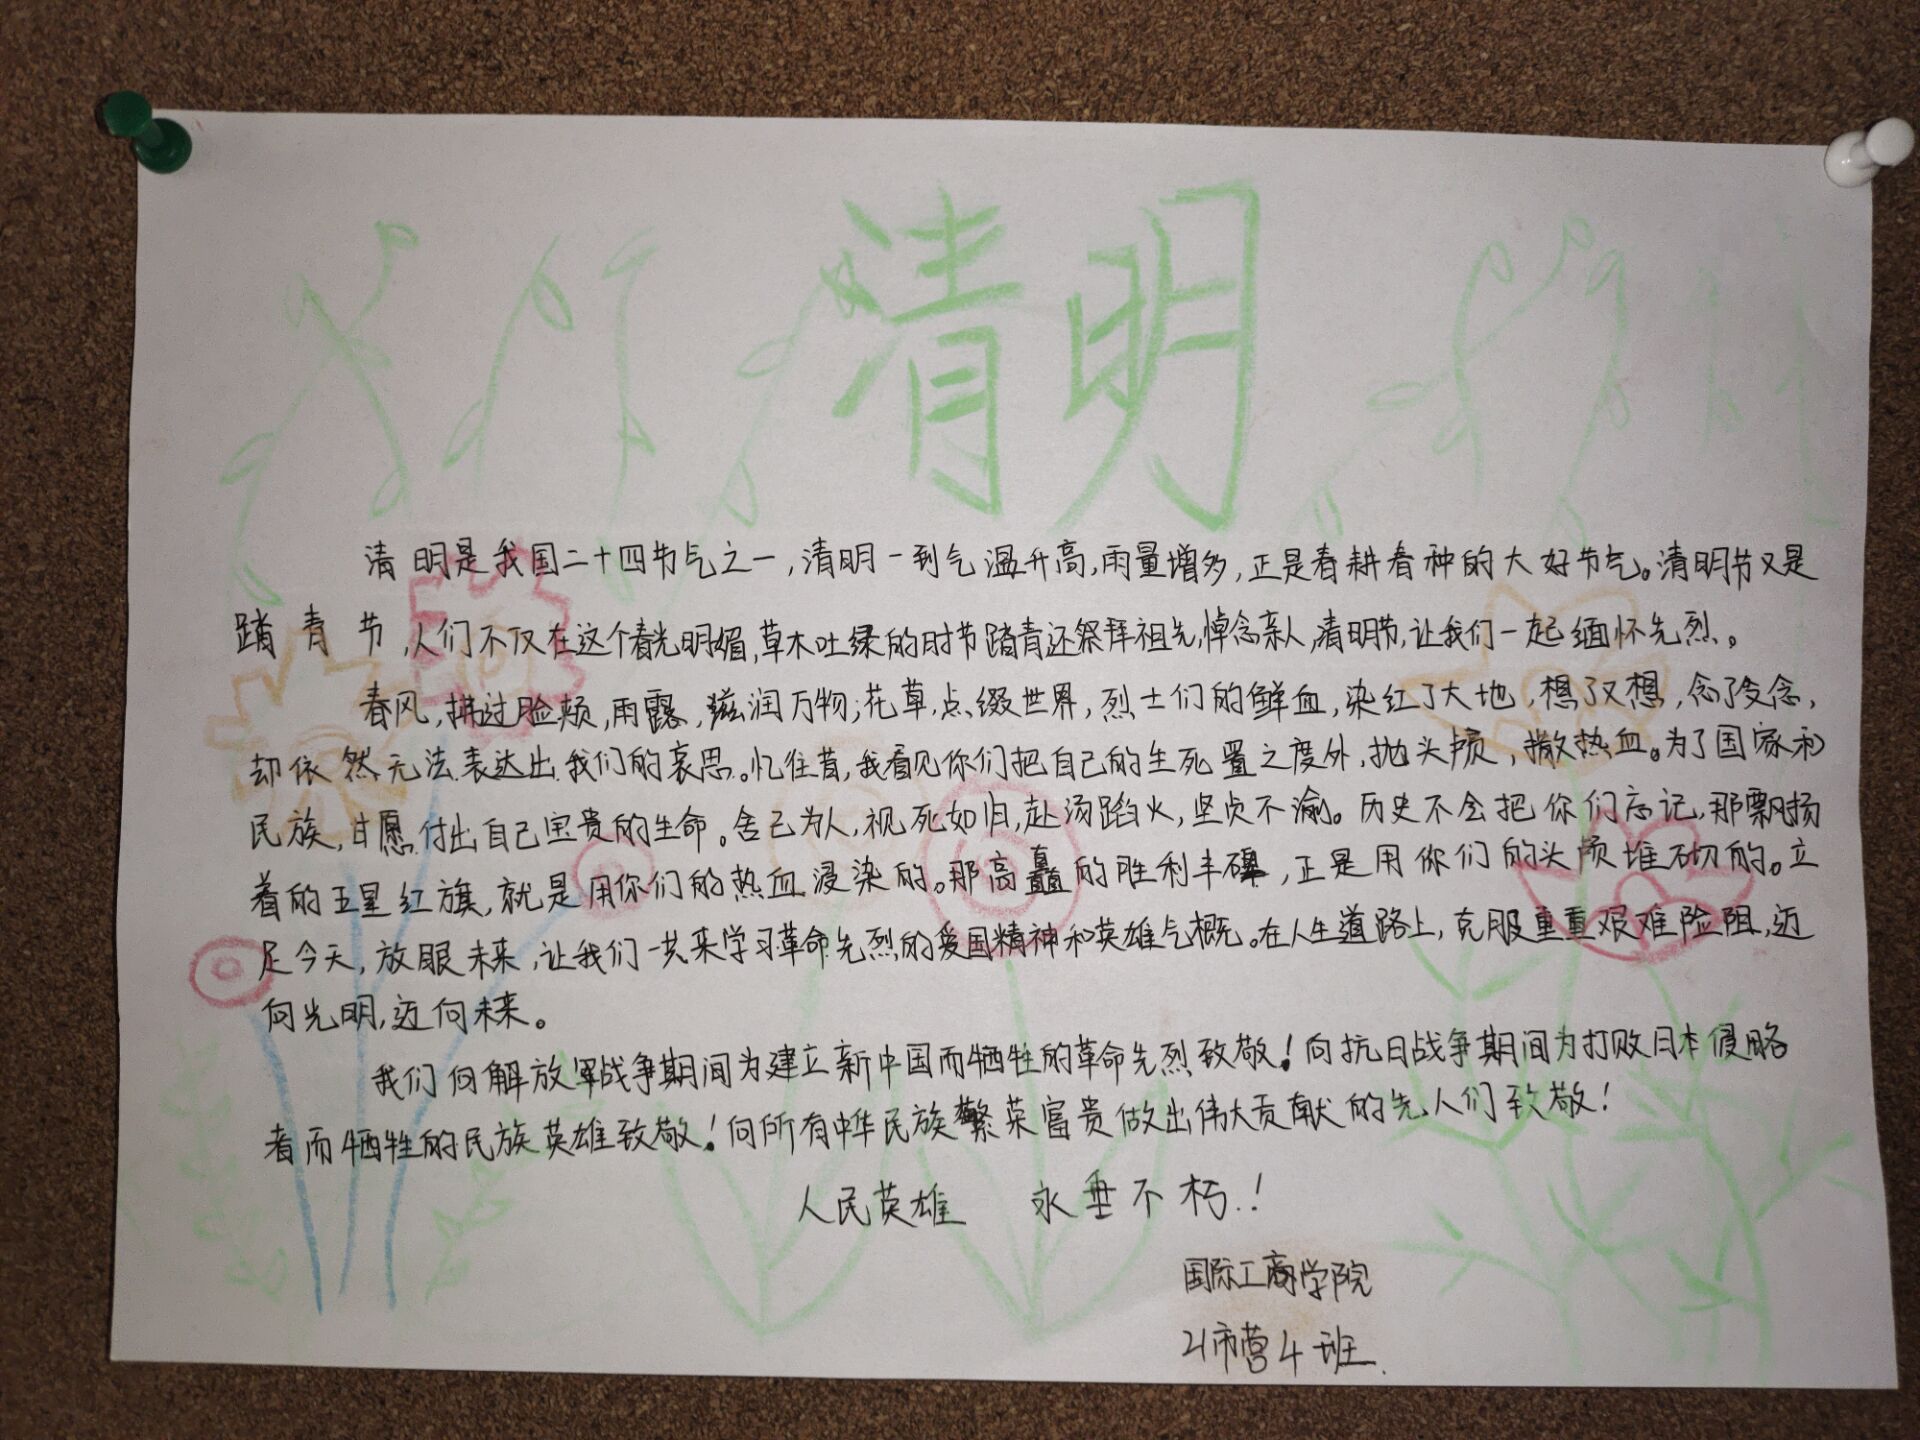 清明
清明是我国二十四节气之一,清明一到气温升高,雨量增多,正是春耕春种的大好节气。清明节又是
踏青节,人们不仅在这个春光明媚,草木吐绿的时节踏青还祭拜祖先,悼念亲人,清明节,让我们一起缅怀先烈。
春风,拂过脸颊,雨露,滋润万物;花草,点缀世界,烈士们的鲜血,染红了大地,想了又想,念了又念,
却依然无法表达出我们的哀思。忆往昔,我看见你们把自己的生死置之度外,抛头颅,撒热血。为了国家和
民族,甘愿付出自己宝贵的生命。舍己为人,视死如归,赴汤蹈火,坚贞不渝。历史不会把你们忘记,那飘扬
着的五星红旗,就是用你们的热血浸染的。那高矗的胜利丰碑,正是用你们的头颅堆砌的。立
足今天,放眼未来,让我们一共来学习革命先烈的爱国精神和英雄气概。在人生道路上,克服重重艰难险阻,迈
向光明,迈向未来。
我们向解放军战争期间为建立新中国而牺牲的革命先烈致敬!向抗日战争期间为打败日本侵略
者而牺牲的民族英雄致敬!向所有中华民族繁荣富贵做出伟大贡献的先人们致敬!
人民英雄 永垂不朽!
国际工商学院
21市营4班